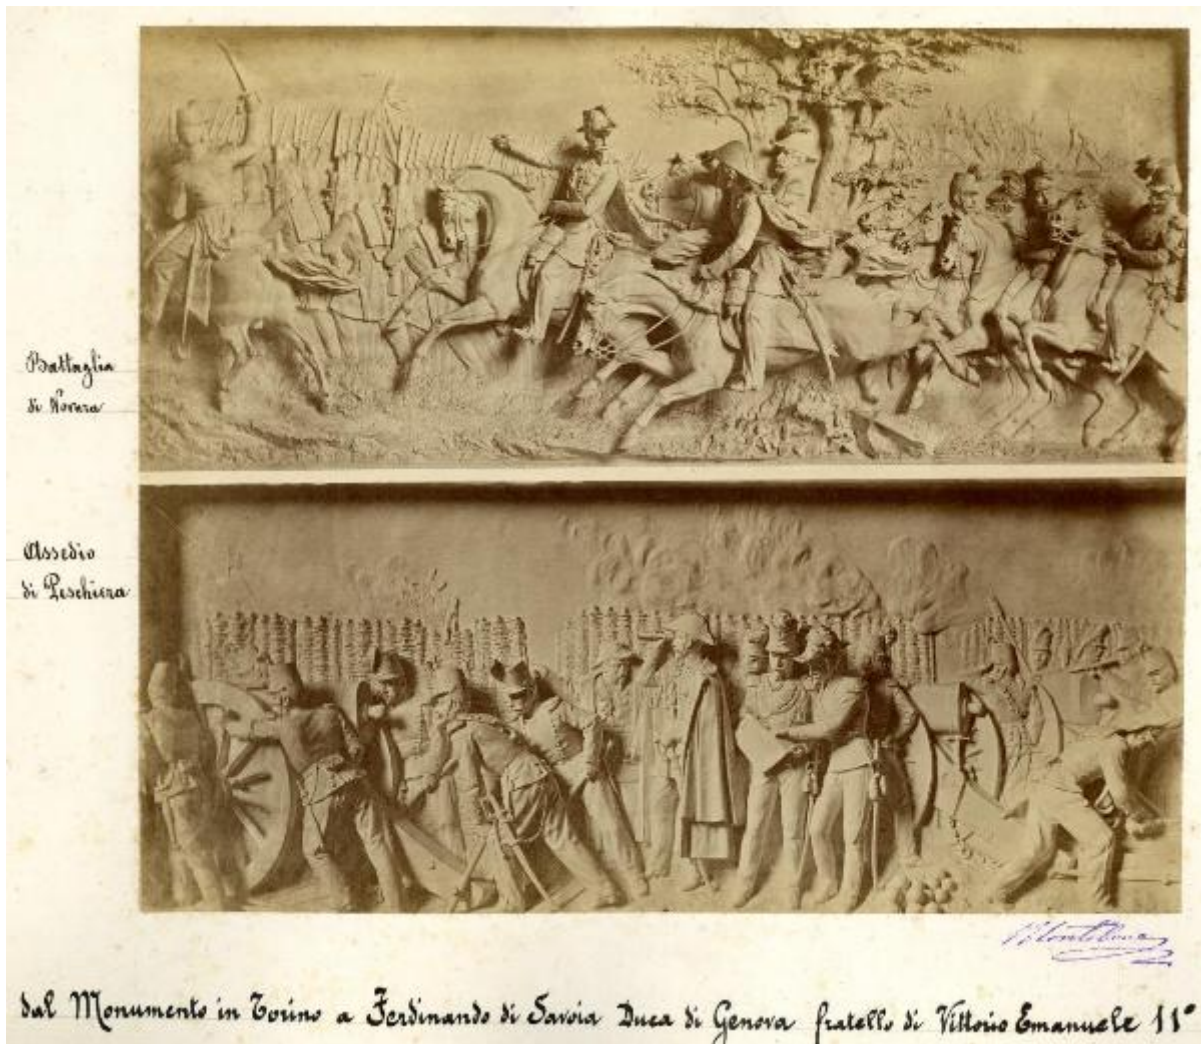 Battaglia
di Novara
Assedio
di Peschiera
dal Monumento in Torino a Ferdinando di Savoia Duca di Genova fratello di Vittorio Emanuele 11°